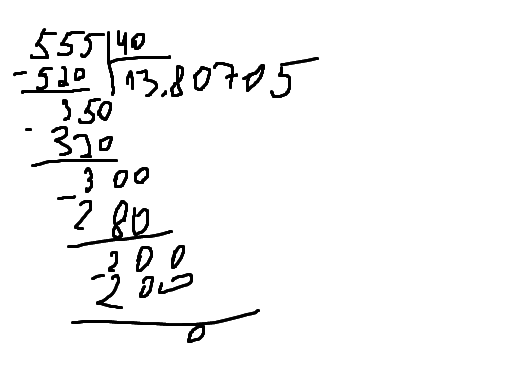 555 40
-520 13.80705
350
-320
300
-280
200
-200
0